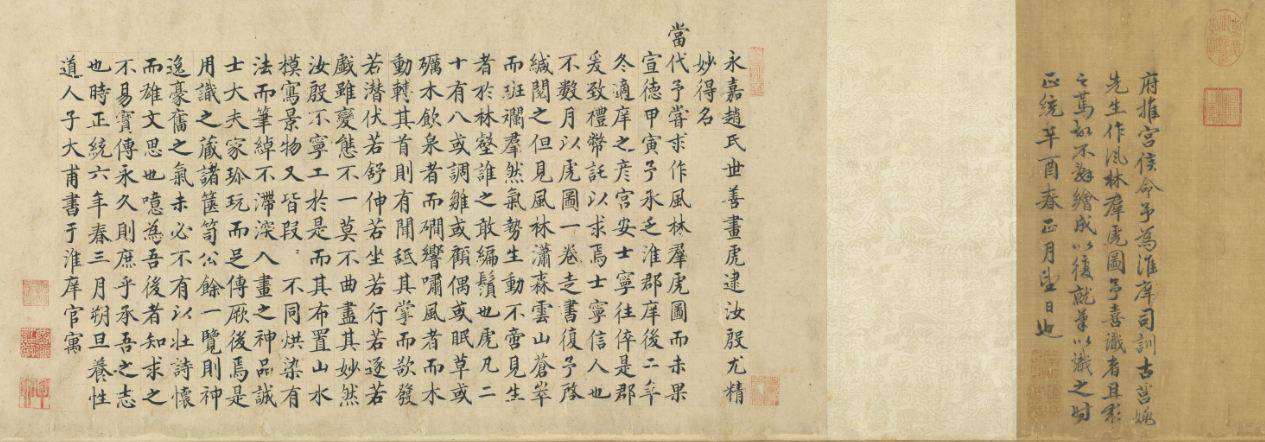 府推宮侯命予為淮庠司訓古莒姚
先生作風林群虎圖予喜識者且
之篤故不辭繪成以復就筆以識之時
正統辛酉春正月望日也
永嘉趙氏世善畫虎逮汝殷尤精
妙得名
當代予嘗求作風林羣虎圖而未果
宣德甲寅予承乏淮郡庠後二年
冬適庠之彥宮安士寧往倅是郡
爰致禮幣託以求焉士寧信人也
不數月以虎圖一卷走書復予啓
緘閱之但見風林瀟森雲山蒼翠
而班斕羣然氣勢生動不啻見生
者於林壑誰之敢編鬚也虎凡二
十有八或調雛或顧偶或眠草或
礪木飲泉者而礀響嘯風者而木
動轉其首則有聞舐其掌而欲發
若潜伏若舒伸若坐若行若逐若
戲雖變態不一莫不曲盡其妙然
汝殷不寧工於是而其布置山水
模寫景物又皆叚不同烘染有
法而筆綽不滯深入畫之神品誠
士大夫家珎玩而足傳厥後焉是
用識之蔵諸篋笥公餘一覽則神
逸豪奮之氣未必不有以壯詩懷
而雄文思也噫為吾後者知求之
不易寳傳永久則庶乎承吾之志
也時正統六年春三月朔旦養性
道人子大甫書于淮庠官寓